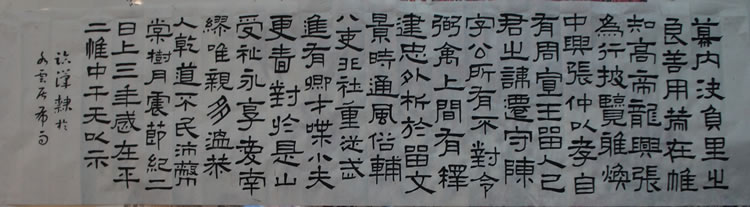 幕內決負里之
良善用籌在帷
知高帝龍興張
為行披覽雅煥
中興張仲以孝自
有周宣王留人已
君之諱遷守陳
字公所有不對令
禽上間有釋
建忠外析於留文
景時通風俗輔
八吏非社重從
進有卿才喋小夫
更嗇對於是山
受祉永享爰南
繆唯親多溫恭
人乾道不民沛
棠樹月震節紀二
日上三年感在平
二帷中千无以示
臨漢隸於
雲居